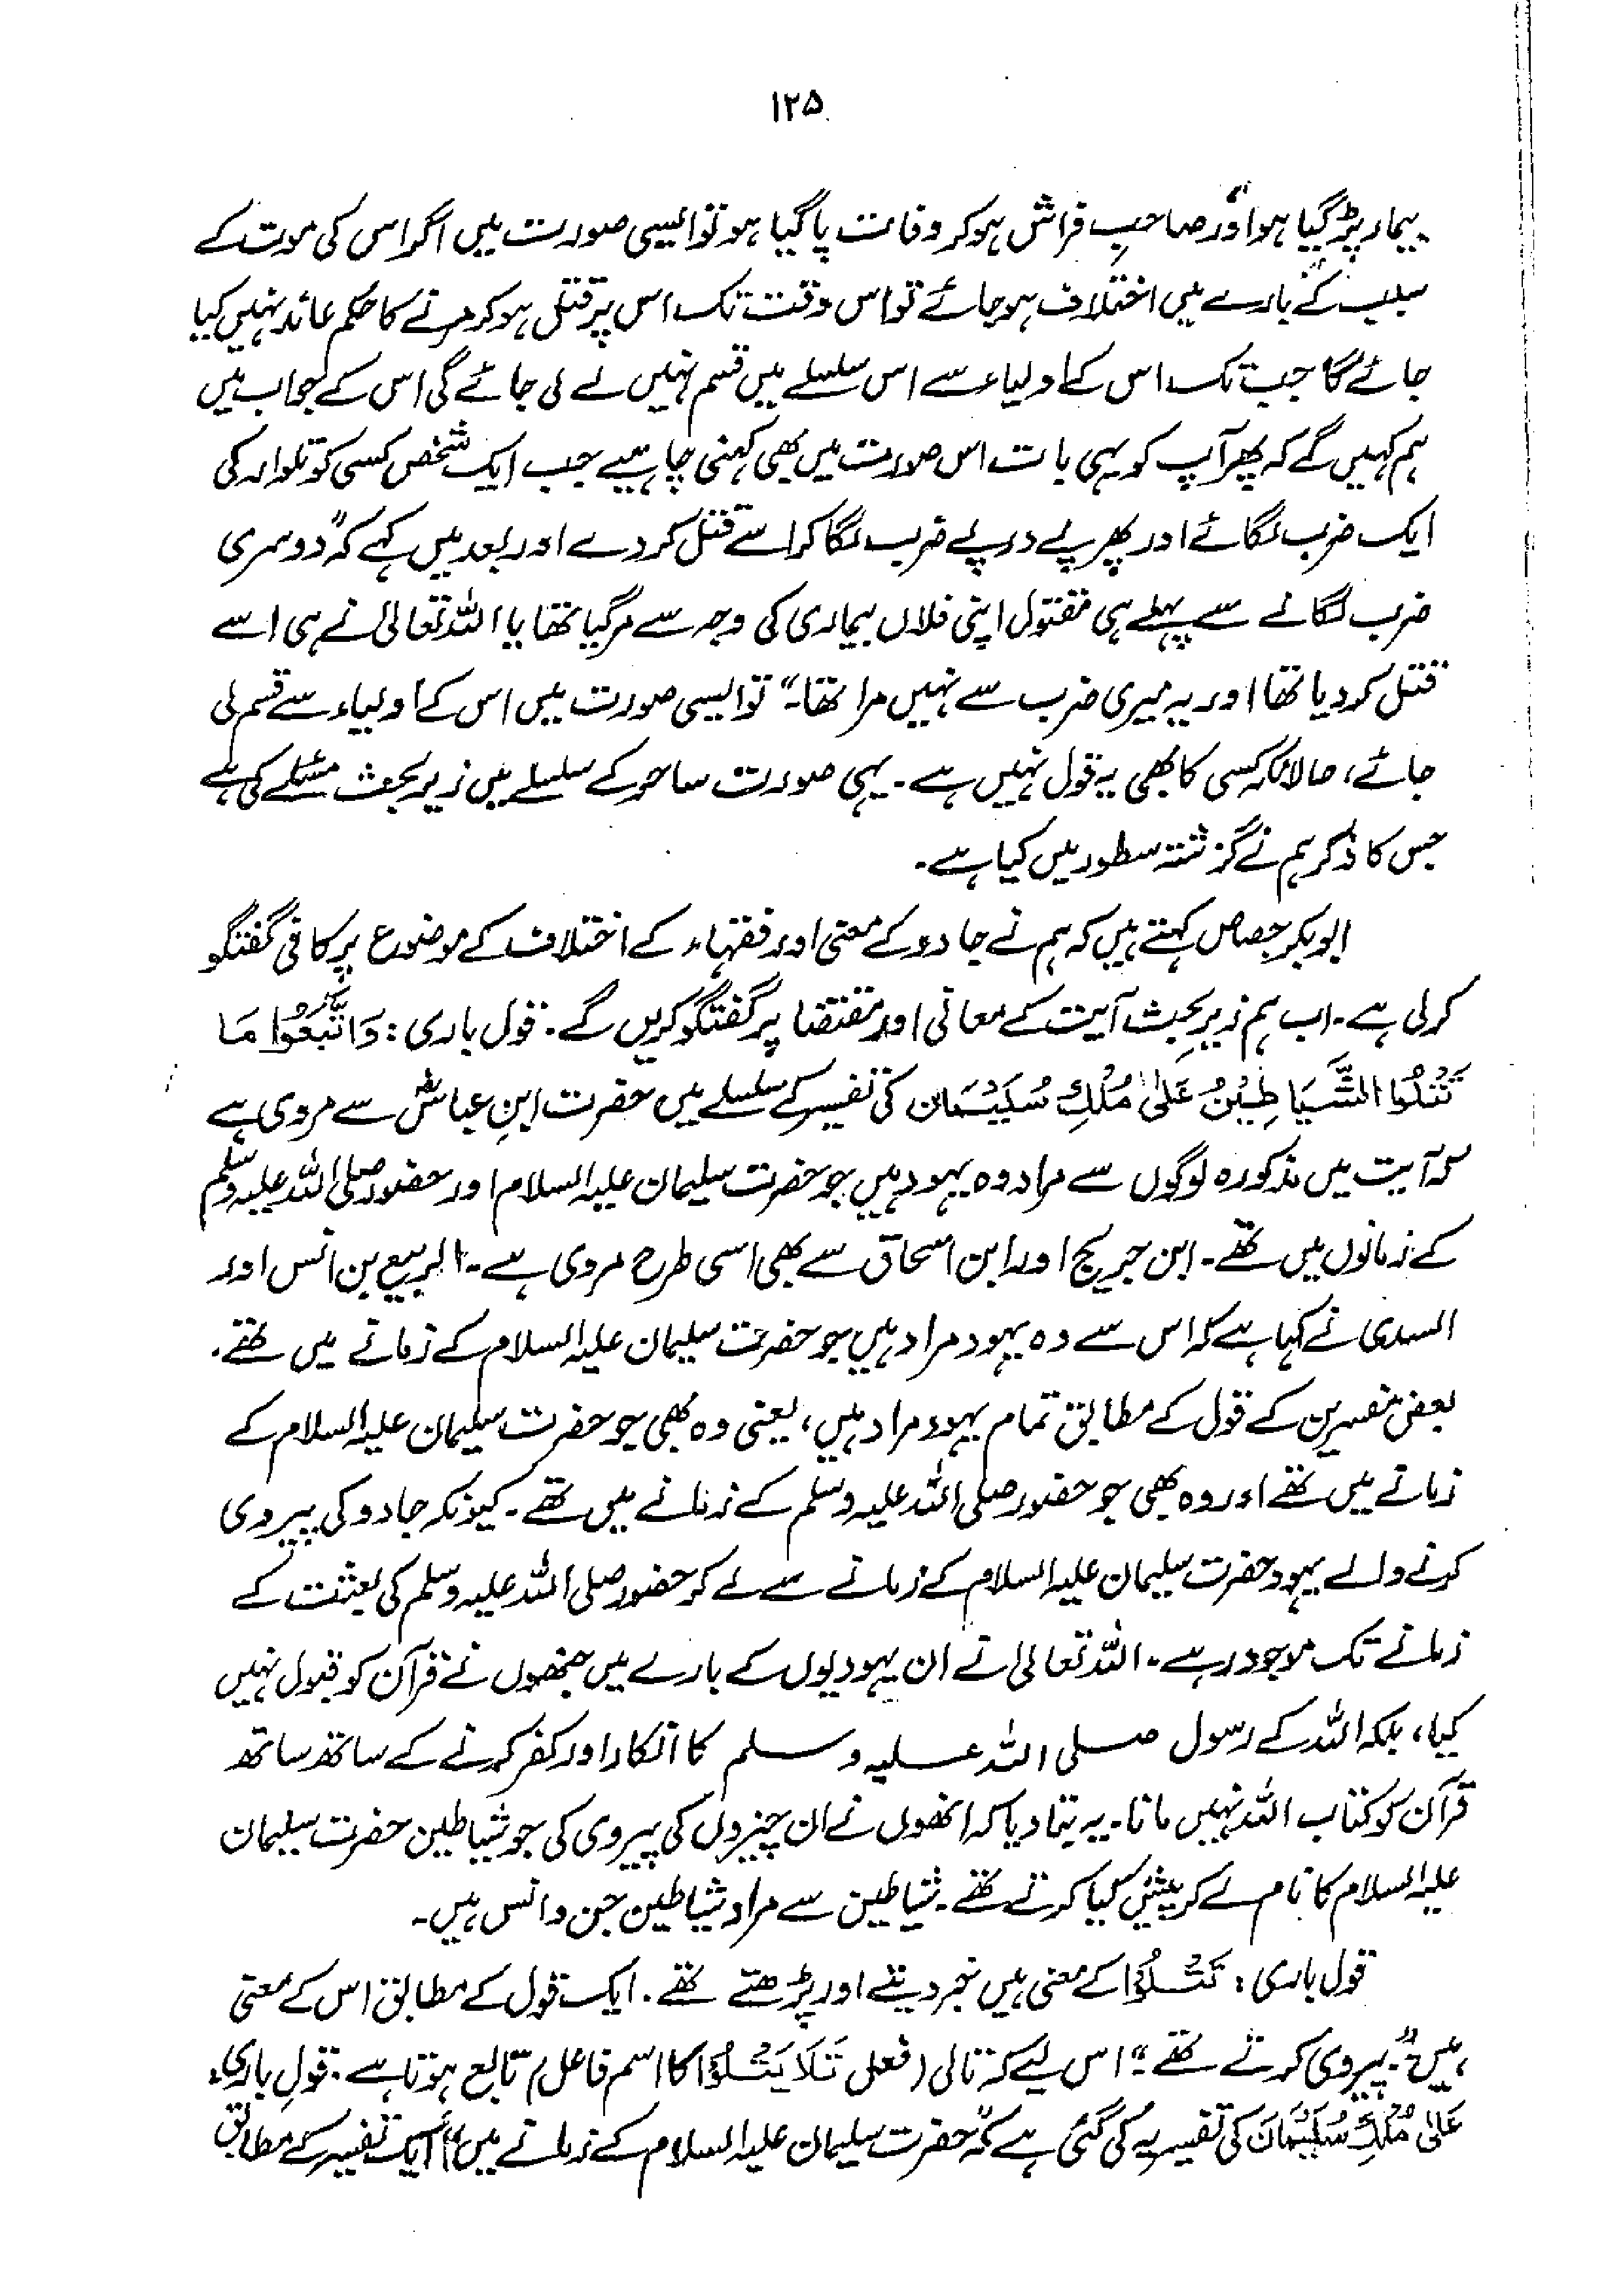 ۱۲۵
بیمار پڑ گیا ہو اور صاحبِ فراش ہو کر وفات پا گیا ہو تو ایسی صورت میں اگر اس کی موت کے
سبب کے بارے میں اختلاف ہو جائے تو اس وقت تک اس پر قتل ہو کر مرنے کا حکم عائد نہیں کیا
جائے گا جب تک اس کے اولیاء سے اس سلسلے میں قسم نہیں لے لی جائے گی اس کے جواب میں
ہم کہیں گے کہ پھر آپ کو یہی بات اس صورت میں بھی کہنی چاہیے جب ایک شخص کسی کو تلوار کی
ایک ضرب لگائے اور پھر پے در پے ضرب لگا کر اسے قتل کر دے اور بعد میں کہے کہ "دوسری
ضرب لگانے سے پہلے ہی مقتول اپنی فلاں بیماری کی وجہ سے مر گیا تھا یا اللہ تعالیٰ نے ہی اسے
قتل کر دیا تھا اور یہ میری ضرب سے نہیں مرا تھا۔" تو ایسی صورت میں اس کے اولیاء سے قسم لی
جائے، حالانکہ کسی کا بھی یہ قول نہیں ہے۔ یہی صورت ساحر کے سلسلے میں زیر بحث مسئلے کی ہے
جس کا ذکر ہم نے گزشتہ سطور میں کیا ہے۔
ابوبکر جصاص کہتے ہیں کہ ہم نے جادو کے معنی اور فقہاء کے اختلاف کے موضوع پر کافی گفتگو
کر لی ہے۔ اب ہم زیرِ بحث آیت کے معانی اور مقتضا پر گفتگو کریں گے۔ قول باری: وَاتَّبَعُوا مَا
تَتْلُوا الشَّيَاطِيْنُ عَلىٰ مُلْكِ سُلَيْمَان کی تفسیر کے سلسلے میں حضرت ابنِ عباسؓ سے مروی ہے
کہ آیت میں مذکورہ لوگوں سے مراد وہ یہود ہیں جو حضرت سلیمان علیہ السلام اور حضور صلی اللہ علیہ وسلم
کے زمانوں میں تھے۔ ابن جریج اور ابن اسحاق سے بھی اسی طرح مروی ہے۔ الربیع بن انس اور
السدی نے کہا ہے کہ اس سے وہ یہود مراد ہیں جو حضرت سلیمان علیہ السلام کے زمانے میں تھے۔
بعض مفسرین کے قول کے مطابق تمام یہود مراد ہیں، یعنی وہ بھی جو حضرت سلیمان علیہ السلام کے
زمانے میں تھے اور وہ بھی جو حضور صلی اللہ علیہ وسلم کے زمانے میں تھے۔ کیونکہ جادو کی پیروی
کرنے والے یہود حضرت سلیمان علیہ السلام کے زمانے سے لے کر حضور صلی اللہ علیہ وسلم کی بعثت کے
زمانے تک موجود رہے۔ اللہ تعالیٰ نے ان یہودیوں کے بارے میں جنھوں نے قرآن کو قبول نہیں
کیا، بلکہ اللہ کے رسول صلی اللہ علیہ وسلم کا انکار اور کفر کرنے کے ساتھ ساتھ
قرآن کو کتاب اللہ نہیں مانا۔ یہ بتا دیا کہ انھوں نے ان چیزوں کی پیروی کی جو شیاطین حضرت سلیمان
علیہ السلام کا نام لے کر پیش کیا کرتے تھے۔ شیاطین سے مراد شیاطین جن و انس ہیں۔
قول باری: تَتْلُوْا کے معنی ہیں خبر دیتے اور پڑھتے تھے۔ ایک قول کے مطابق اس کے معنی
ہیں "پیروی کرتے تھے"۔ اس لیے کہ تالی (فعل تَلَا يَتْلُوْا کا اسم فاعل) تابع ہوتا ہے۔ قولِ باری:
عَلىٰ مُلْكِ سُلَيْمَانَ کی تفسیر یہ کی گئی ہے کہ "حضرت سلیمان علیہ السلام کے زمانے میں" ایک تفسیر کے مطابق